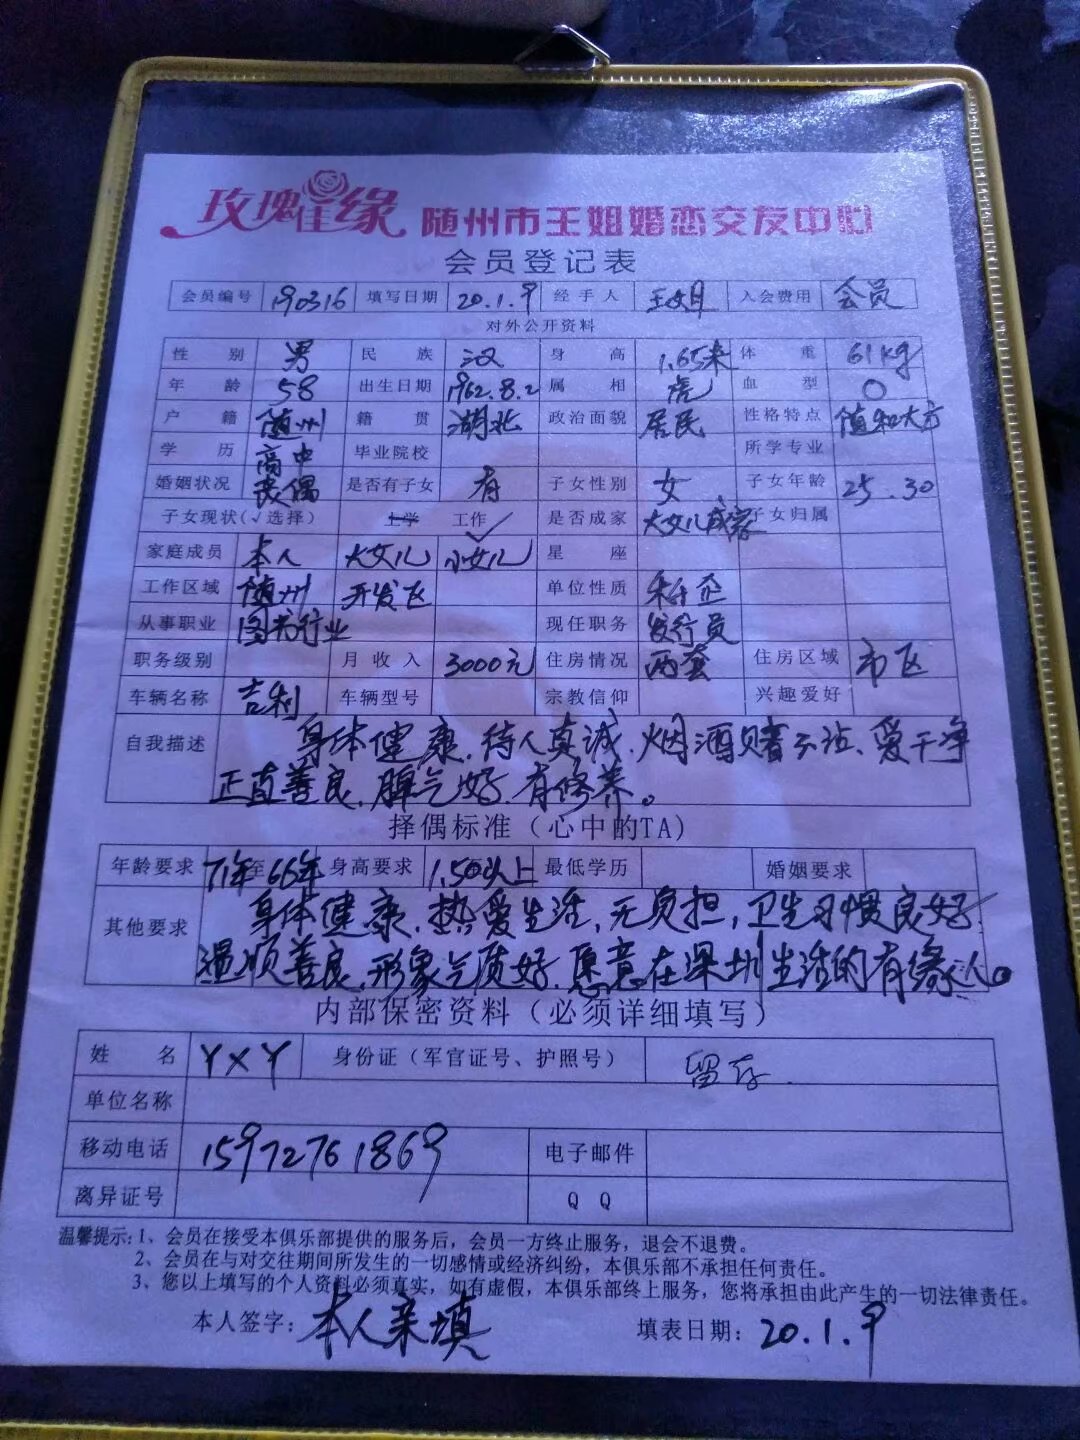 玫瑰佳缘 随州市王姐婚恋交友中心
会员登记表
会员编号 190316 填写日期 20.1.9 经手人 王姐 入会费用 会员
对外公开资料
性别 男 民族 汉 身高 1.65米 体重 61kg
年龄 58 出生日期 1962.8.2 属相 虎 血型 O
户籍 随州 籍贯 湖北 政治面貌 居民 性格特点 随和大方
学历 高中 毕业院校 所学专业
婚姻状况 丧偶 是否有子女 有 子女性别 女 子女年龄 25.30
子女现状(√选择) 上学 工作 √ 是否成家 大女儿成家 子女归属
家庭成员 本人 大女儿 小女儿 星座
工作区域 随州 开发区 单位性质 私企
从事职业 图书行业 现任职务 发行员
职务级别 月收入 3000元 住房情况 两套 住房区域 市区
车辆名称 吉利 车辆型号 宗教信仰 兴趣爱好
自我描述 身体健康、待人真诚、烟酒赌不沾、爱干净
正直善良、脾气好、有修养。
择偶标准（心中的TA）
年龄要求 71年至66年 身高要求 1.50以上 最低学历 婚姻要求
其他要求 身体健康、热爱生活、无负担，卫生习惯良好
温顺善良、形象气质好、愿意在深圳生活的有缘人。
内部保密资料（必须详细填写）
姓名 YXY 身份证（军官证号、护照号） 留存
单位名称
移动电话 15972761869 电子邮件
离异证号 QQ
温馨提示:1、会员在接受本俱乐部提供的服务后，会员一方终止服务，退会不退费。
2、会员在与对交往期间所发生的一切感情或经济纠纷，本俱乐部不承担任何责任。
3、您以上填写的个人资料必须真实，如有虚假，本俱乐部终上服务，您将承担由此产生的一切法律责任。
本人签字: 本人亲填 填表日期: 20.1.9